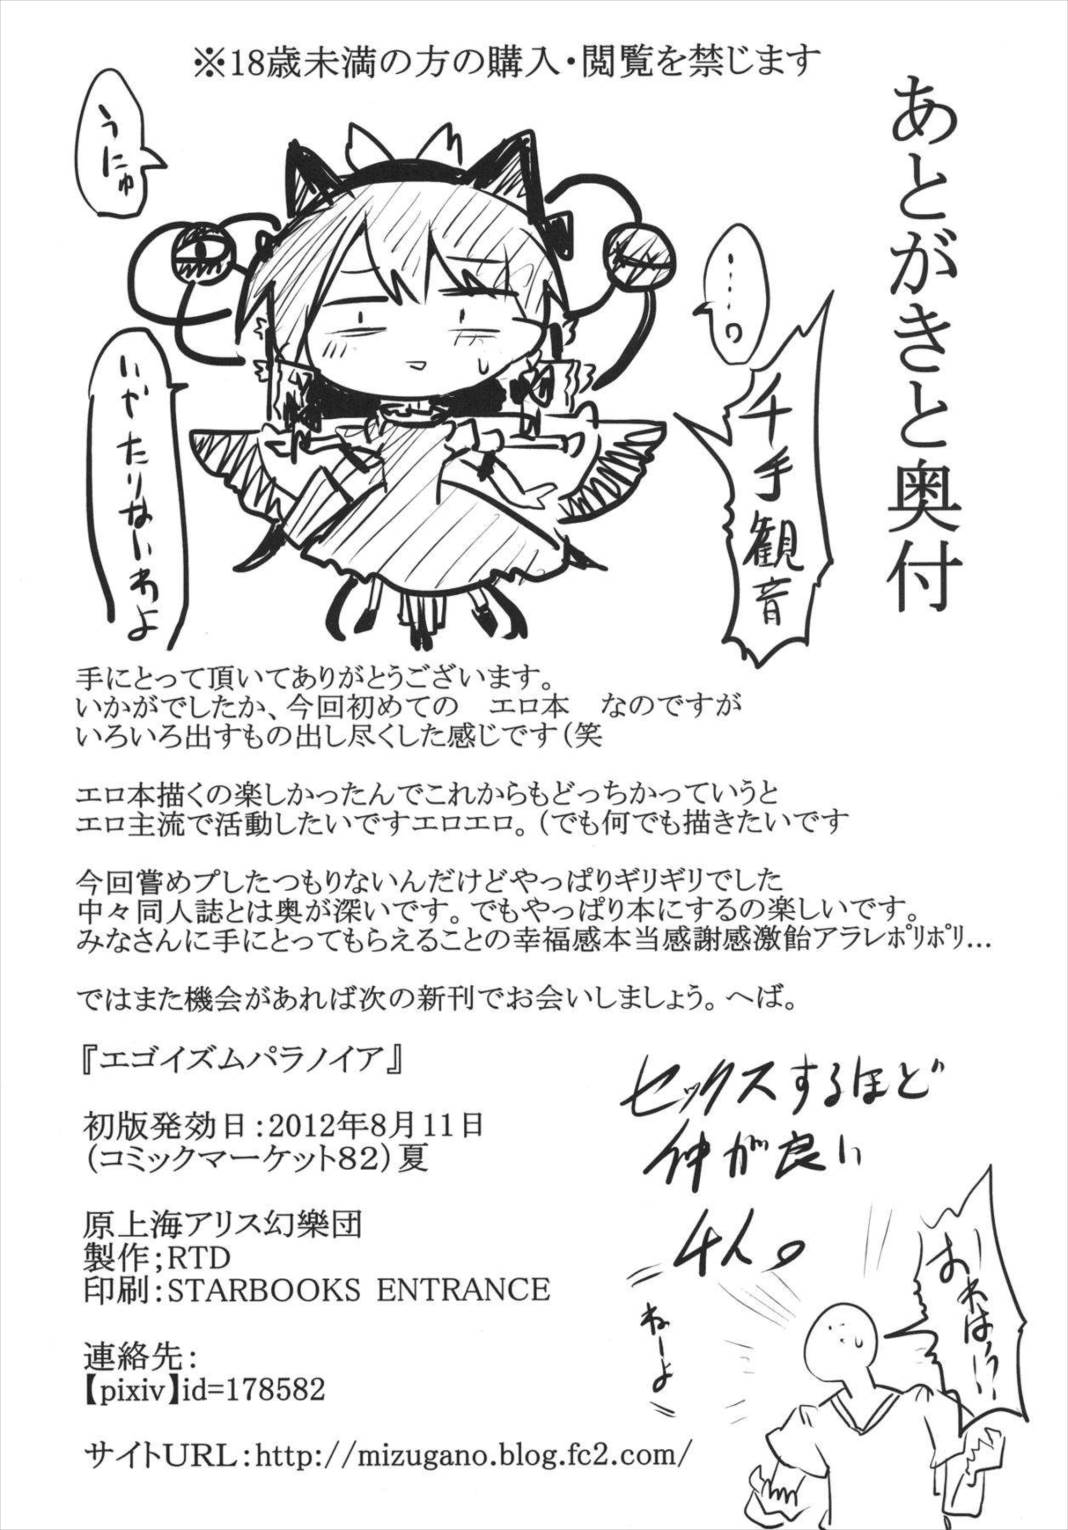 ※18歳未満の方の購入・閲覧を禁じます
あとがきと奥付
うにゅ
いやたりないわよ
千手観音
手にとって頂いてありがとうございます。
いかがでしたか、今回初めての　エロ本　なのですが
いろいろ出すもの出し尽くした感じです(笑
エロ本描くの楽しかったんでこれからもどっちかっていうと
エロ主流で活動したいですエロエロ。(でも何でも描きたいです
今回嘗めプしたつもりないんだけどやっぱりギリギリでした
中々同人誌とは奥が深いです。でもやっぱり本にするの楽しいです。
みなさんに手にとってもらえることの幸福感本当感謝感激飴アラレﾎﾟﾘﾎﾟﾘ…
ではまた機会があれば次の新刊でお会いしましょう。へば。
『エゴイズムパラノイア』
初版発効日:2012年8月11日
(コミックマーケット82)夏
原上海アリス幻樂団
製作;RTD
印刷:STARBOOKS ENTRANCE
連絡先:
【pixiv】id=178582
サイトURL:http://mizugano.blog.fc2.com/
セックスするほど
仲が良い
4人。
おれは!?
ねーよ